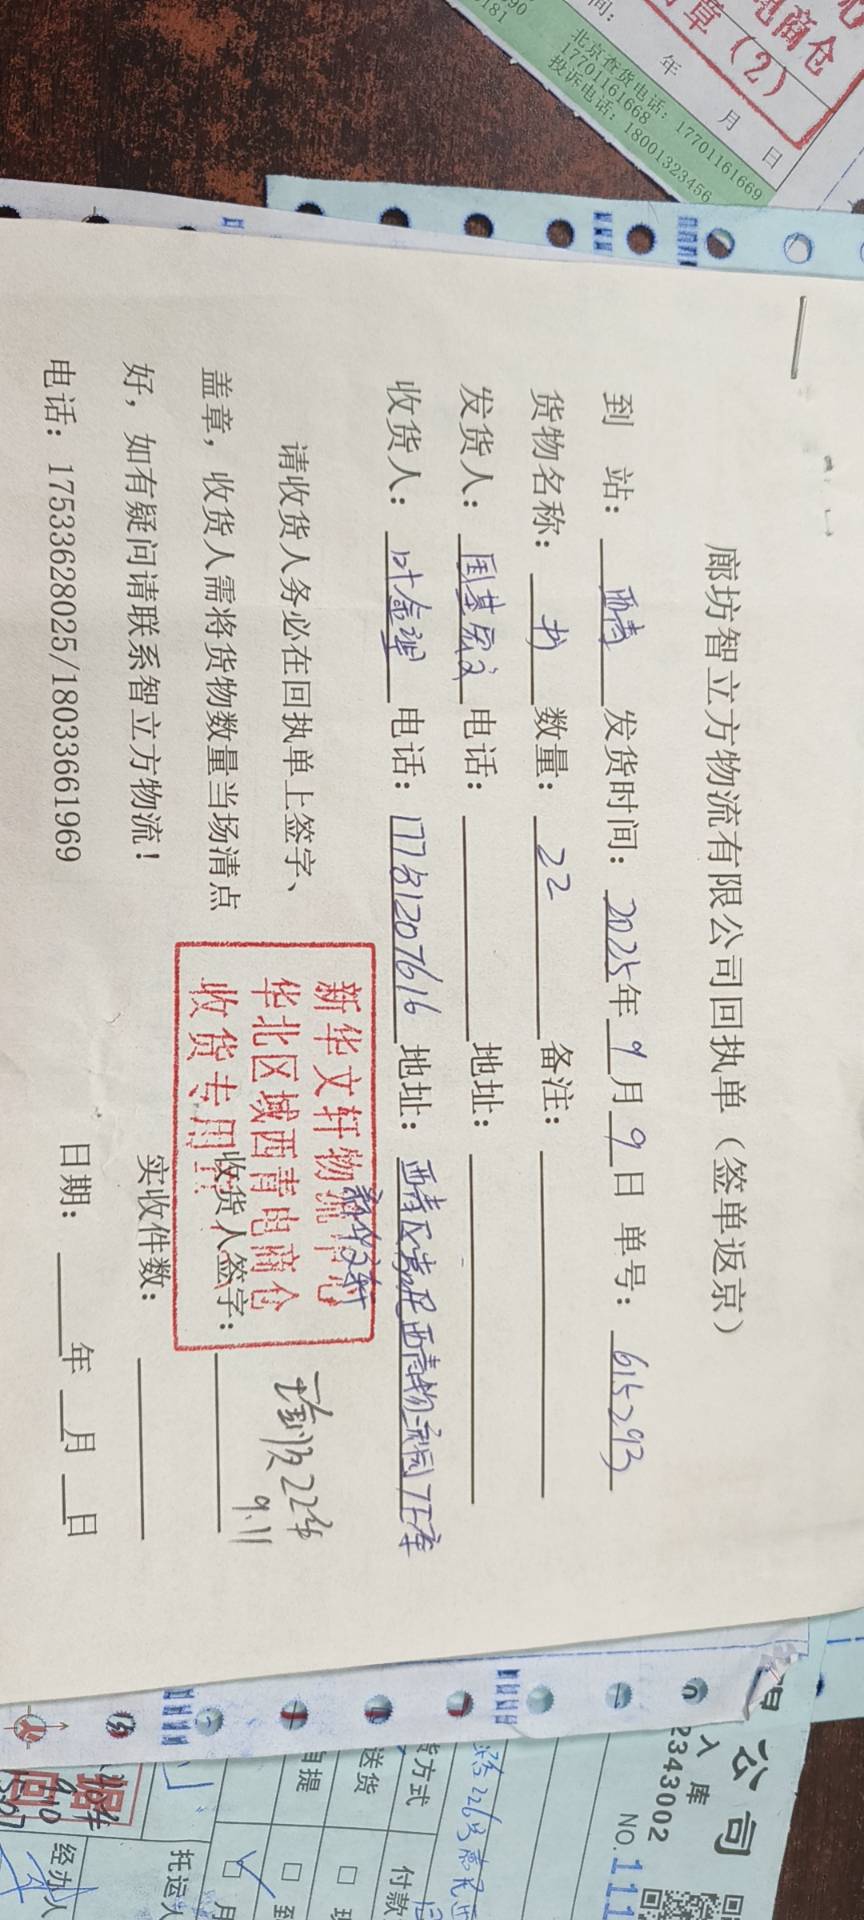 廊坊智立方物流有限公司回执单（签单返京）
到 站： 西青 发货时间： 2025年 9月 9日 单号： 615293
货物名称： 书 数量： 22 备注：
发货人： 国基宏文 电话： 地址：
收货人： 叶金理 电话： 17781207616 地址： 西青区 西青物流园7E库
新华文轩
请收货人务必在回执单上签字、
盖章，收货人需将货物数量当场清点
好，如有疑问请联系智立方物流！
电话：17533628025/18033661969
新华文轩物流中心
华北区域西青电商仓
收货专用章
收货人签字：
实收22件
9.11
实收件数：
日期： 年 月 日
电商仓
章（2）
年 月 日
北京查货电话：17701161669
17701161668
投诉电话：18001323456
公司
入库
2343002
NO.111
货方式
付款
送货
自提
托运人
经办人